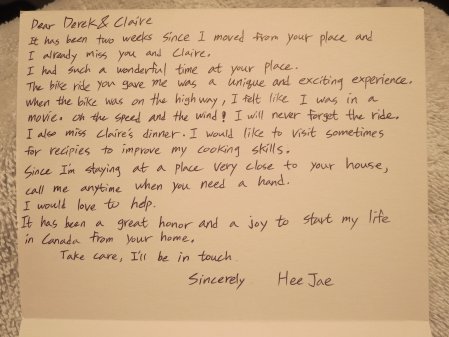 Dear Derek & Claire
It has been two weeks since I moved from your place and
I already miss you and Claire.
I had such a wonderful time at your place.
The bike ride you gave me was a unique and exciting experience.
when the bike was on the highway, I felt like I was in a
movie. Oh the speed and the wind! I will never forget the ride.
I also miss Claire's dinner. I would like to visit sometimes
for recipies to improve my cooking skills.
Since I'm staying at a place very close to your house,
call me anytime when you need a hand.
I would love to help.
It has been a great honor and a joy to start my life
in Canada from your home.
Take care, I'll be in touch
Sincerely Hee Jae